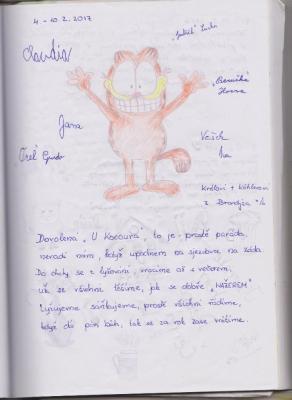 4. - 10. 2. 2017
Claudia
"Jakub"
"Beruška"
Jana
Vašek
Královi + Köhlerovi
z Brandýsa n/L
Dovolená "U Kocoura" to je prostě paráda,
nevadí nám, když upadnem na sjezdovce na záda.
Do chaty se z lyžování vracíme až s večerem,
už se všichni těšíme, jak se dobře "NAŽEREM"
Lyžujeme sáňkujeme, prostě všichni řádíme,
když dá pán bůh, tak se za rok zase vrátíme.